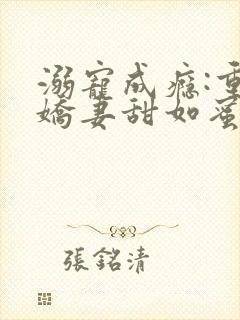 溺寵成癮:重
嬌妻甜如蜜
張銘清